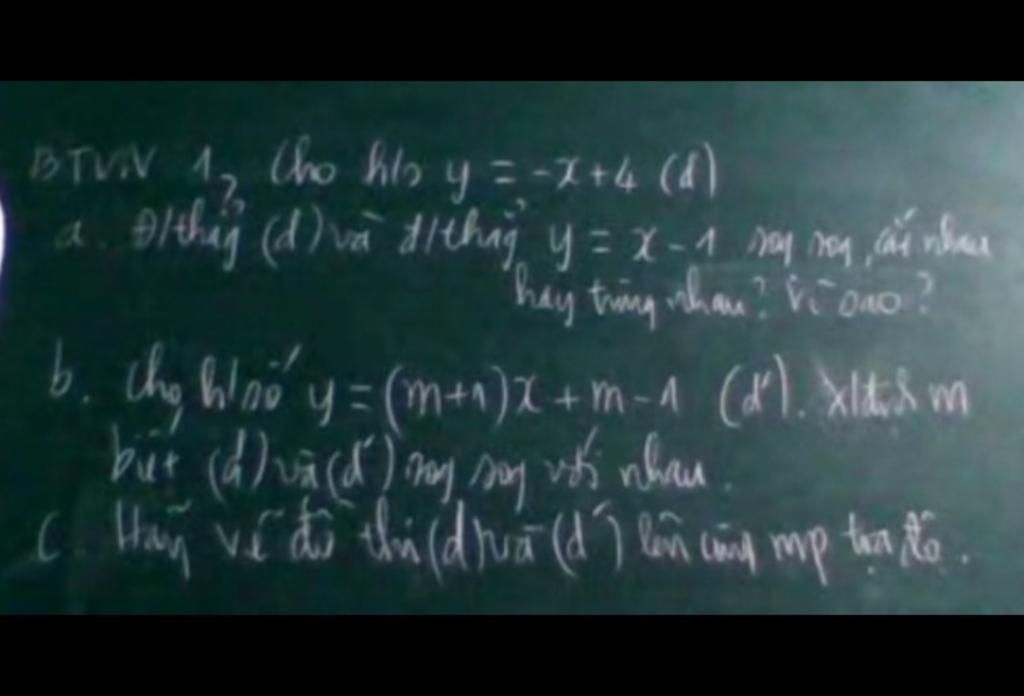 BTVN 1, Cho h/s y = -x+4 (d)
a. Đ/thẳg (d) và đ/thẳg y = x-1 sog sog, cắt nhau
hay trùng nhau? Vì sao?
b. Cho h/số y = (m+1)x + m-1 (d'). X/định m
biết (d) và (d') sog sog với nhau.
c. Hãy vẽ đồ thị (d) và (d') lên cùng mp tọa độ.